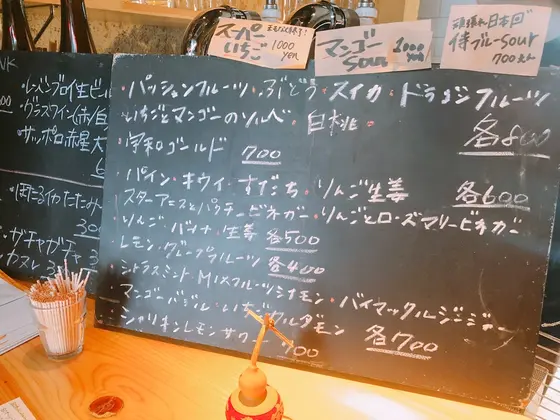 スーパー
いちご
1000
yen
マンゴー
sour
1000
yen
頑張れ日本🇯🇵
侍ブルーsour
700
・パッションフルーツ・ぶどう・スイカ・ドラゴンフルーツ
・いちごとマンゴーのソルベ・白桃・
各800
・宇和ゴールド 700
・パイン・キウイ・すだち・りんご生姜 各600
スターアニスとパクチービネガー・りんごとローズマリービネガー
・りんご・バナナ・生姜 各500
レモン・グレープフルーツ 各400
シトラスミント・MIXフルーツシナモン・バイマックルジンジャー
・マンゴーバジル・いちごカルダモン 各700
・シャリキンレモンサワー 700
生ビ
グラスワイン(赤/白
サッポロ赤星 大
・ほたるイカ
300
・ガチャガチャ